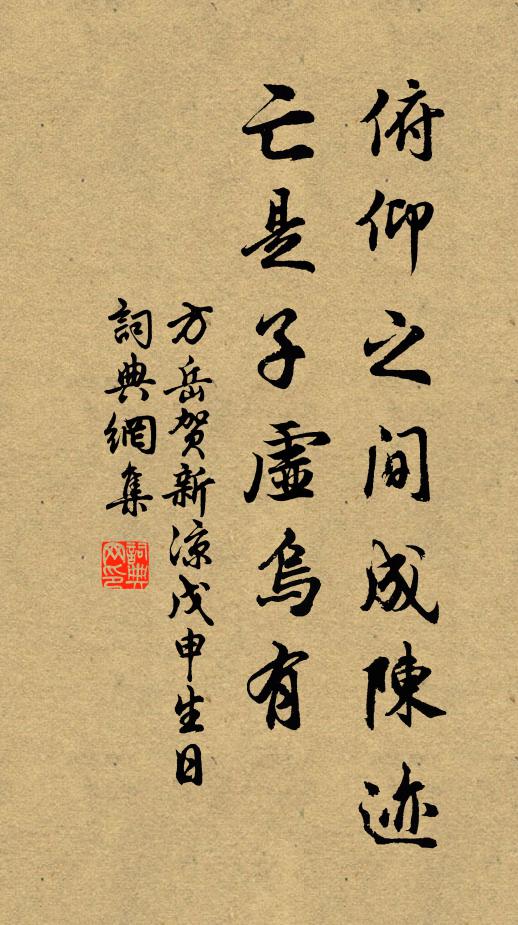 俯仰之间成陳迹
亡是子虛烏有
方岳賀新涼戊申生日
詞典網集
詞典
网印